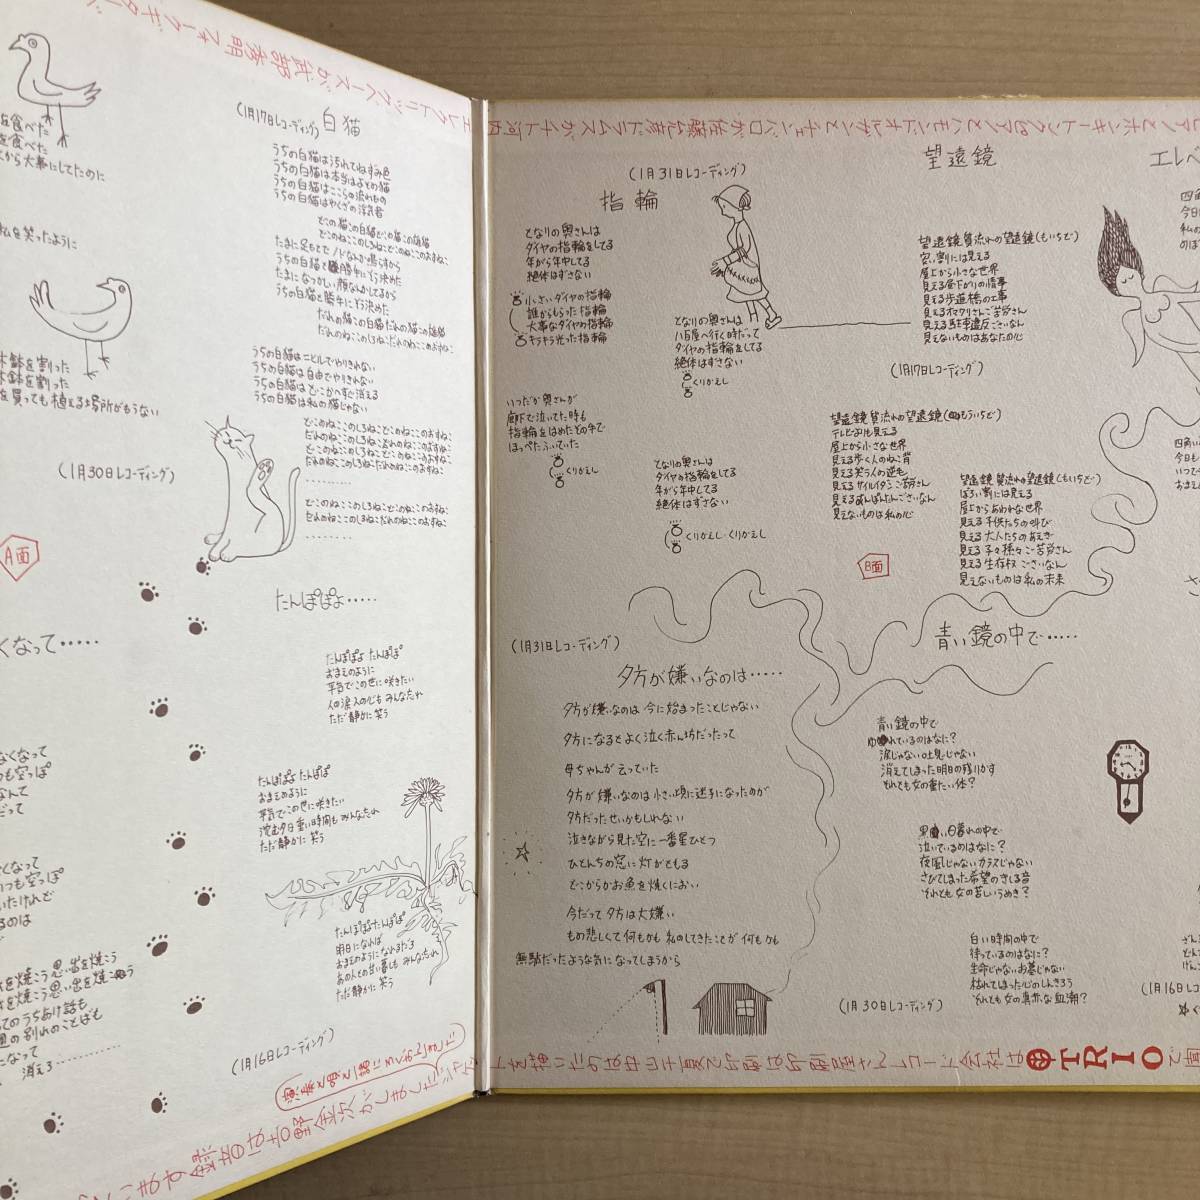 を食べた
を食べた
から大事にしてたのに
私を笑ったように
木鉢を割った
木鉢を割った
を買っても植える場所がもうない
(1月30日レコーディング)
A面
くなって・・・・・
なくなって
も空っぽ
なんて
だって
なくなって
いつも空っぽ
いたけれど
るのは
を焼こう思い出を焼こう
を焼こう思い出を焼こう
てのうちあけ話も
の別れのことばも
になって
消えろ
(1月17日レコーディング)
白猫
うちの白猫は汚れてねずみ色
うちの白猫は本当はよその猫
うちの白猫はここらの流れもの
うちの白猫はやくざの浮気者
どこの猫この白猫どこの猫この雄猫
どこのねここのしろねこどこのねここのおすねこ
たまに足もとでノドなんか鳴らすから
うちの白猫と勝手にそう決めた
たまになつかしい顔なんかしてるから
うちの白猫と勝手にそう決めた
だれの猫この白猫だれの猫この雄猫
だれのねここのしろねこだれのねここのおすねこ
うちの白猫はニヒルでやりきれない
うちの白猫は自由でやりきれない
うちの白猫はどこかへすぐ消える
うちの白猫は私の猫じゃない
どこのねここのしろねこどこのねここのおすねこ
だれのねここのしろねこだれのねここのおすねこ
どこのねここのしろねこどこのねここのおすねこ
だれのねここのしろねこだれのねここのおすねこ
・・・・・・・・・
どこのねここのしろねこどこのねここのおすねこ
だれのねここのしろねこだれのねここのおすねこ
・・・・・・・・
たんぽぽよ・・・・・
たんぽぽよ たんぽぽ
おまえのように
平気でこの世に咲きたい
人の涙人の心も みんなたれ
ただ静かに笑う
たんぽぽよ たんぽぽ
おまえのように
平気でこの世に咲きたい
沈む夕日重い時間も みんなたれ
ただ静かに 笑う
たんぽぽよたんぽぽ
明日になれば
おまえのようになれるだろ
あの人との甘い暮しも みんなたれ
ただ静かに 笑う
(1月16日レコーディング)
演奏と唄と一緒にろくおんしました
(1月31日レコーディング)
指輪
となりの奥さんは
ダイヤの指輪をしてる
年がら年中してる
絶体はずさない
小さいダイヤの指輪
誰からもらった指輪
大事なダイヤの指輪
キラキラ光った指輪
となりの奥さんは
八百屋へ行く時だって
ダイヤの指輪をしてる
絶体はずさない
くりかえし
いつだか奥さんが
廊下で泣いてた時も
指輪をはめたその手で
ほっぺたふいていた
くりかえし
となりの奥さんは
ダイヤの指輪をしてる
年がら年中してる
絶体はずさない
くりかえし・くりかえし
望遠鏡
望遠鏡 質流れの望遠鏡(もいちど)
安い割には見える
屋上から小さな世界
見える昼下がりの情事
見える歩道橋の工事
見えるオマワリさんご苦労さん
見える駐車違反ごさいなん
見えないものはあなたの心
(1月17日レコーディング)
望遠鏡 質流れの望遠鏡(もういちど)
テレビよりも見える
屋上から小さな世界
見える歩く人のねこ背
見える笑う人の逆毛
見えるサイルイタンご苦労さん
見えるあんぽんたんごさいなん
見えないものは私の心
望遠鏡 質流れの望遠鏡(もいちど)
ぼろい割には見える
屋上からあわれな世界
見える子供たちの叫び
見える大人たちのあえぎ
見える子々孫々ご苦労さん
見える生存权 ごさいなん
見えないものは私の未来
B面
エレベ
四角
今日
私の
のぼ
四角い
今日も
いつで
おまえ
(1月31日レコーディング)
夕方が嫌いなのは・・・・・
夕方が嫌いなのは 今に始まったことじゃない
夕方になるとよく泣く赤ん坊だったって
母ちゃんが云っていた
夕方が嫌いなのは小さい頃に迷子になったのが
夕方だったせいかもしれない
泣きながら見た空に一番星ひとつ
ひとんちの窓に灯がともる
どこからかお魚を焼くにおい
今だって夕方は大嫌い
もの悲しくて何もかも 私のしてきたことが何もかも
無駄だったような気になってしまうから
青い鏡の中で・・・・・
青い鏡の中で
ゆれているのはなに?
涙じゃない吐息じゃない
消えてしまった明日の残りかす
それとも女の重たい体?
黒い日暮れの中で
泣いているのはなに?
夜風じゃないカラスじゃない
さびてしまった希望のきしる音
それとも女の苦しいうめき?
白い時間の中で
待っているのはなに?
生命じゃないお墓じゃない
枯れてしまった心のしんきろう
それとも女の真赤な血潮?
(1月30日レコーディング)
(1月16日レコ
TRIO